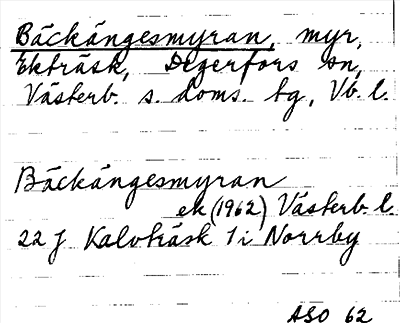 Bäckängesmyran, myr,
Ekträsk, Degerfors sn,
Västerb. s. doms. tg, Vb. l.
Bäckängesmyran
ek (1962) Västerb. l.
22 J Kalvträsk 1 i Norrby
ASO 62